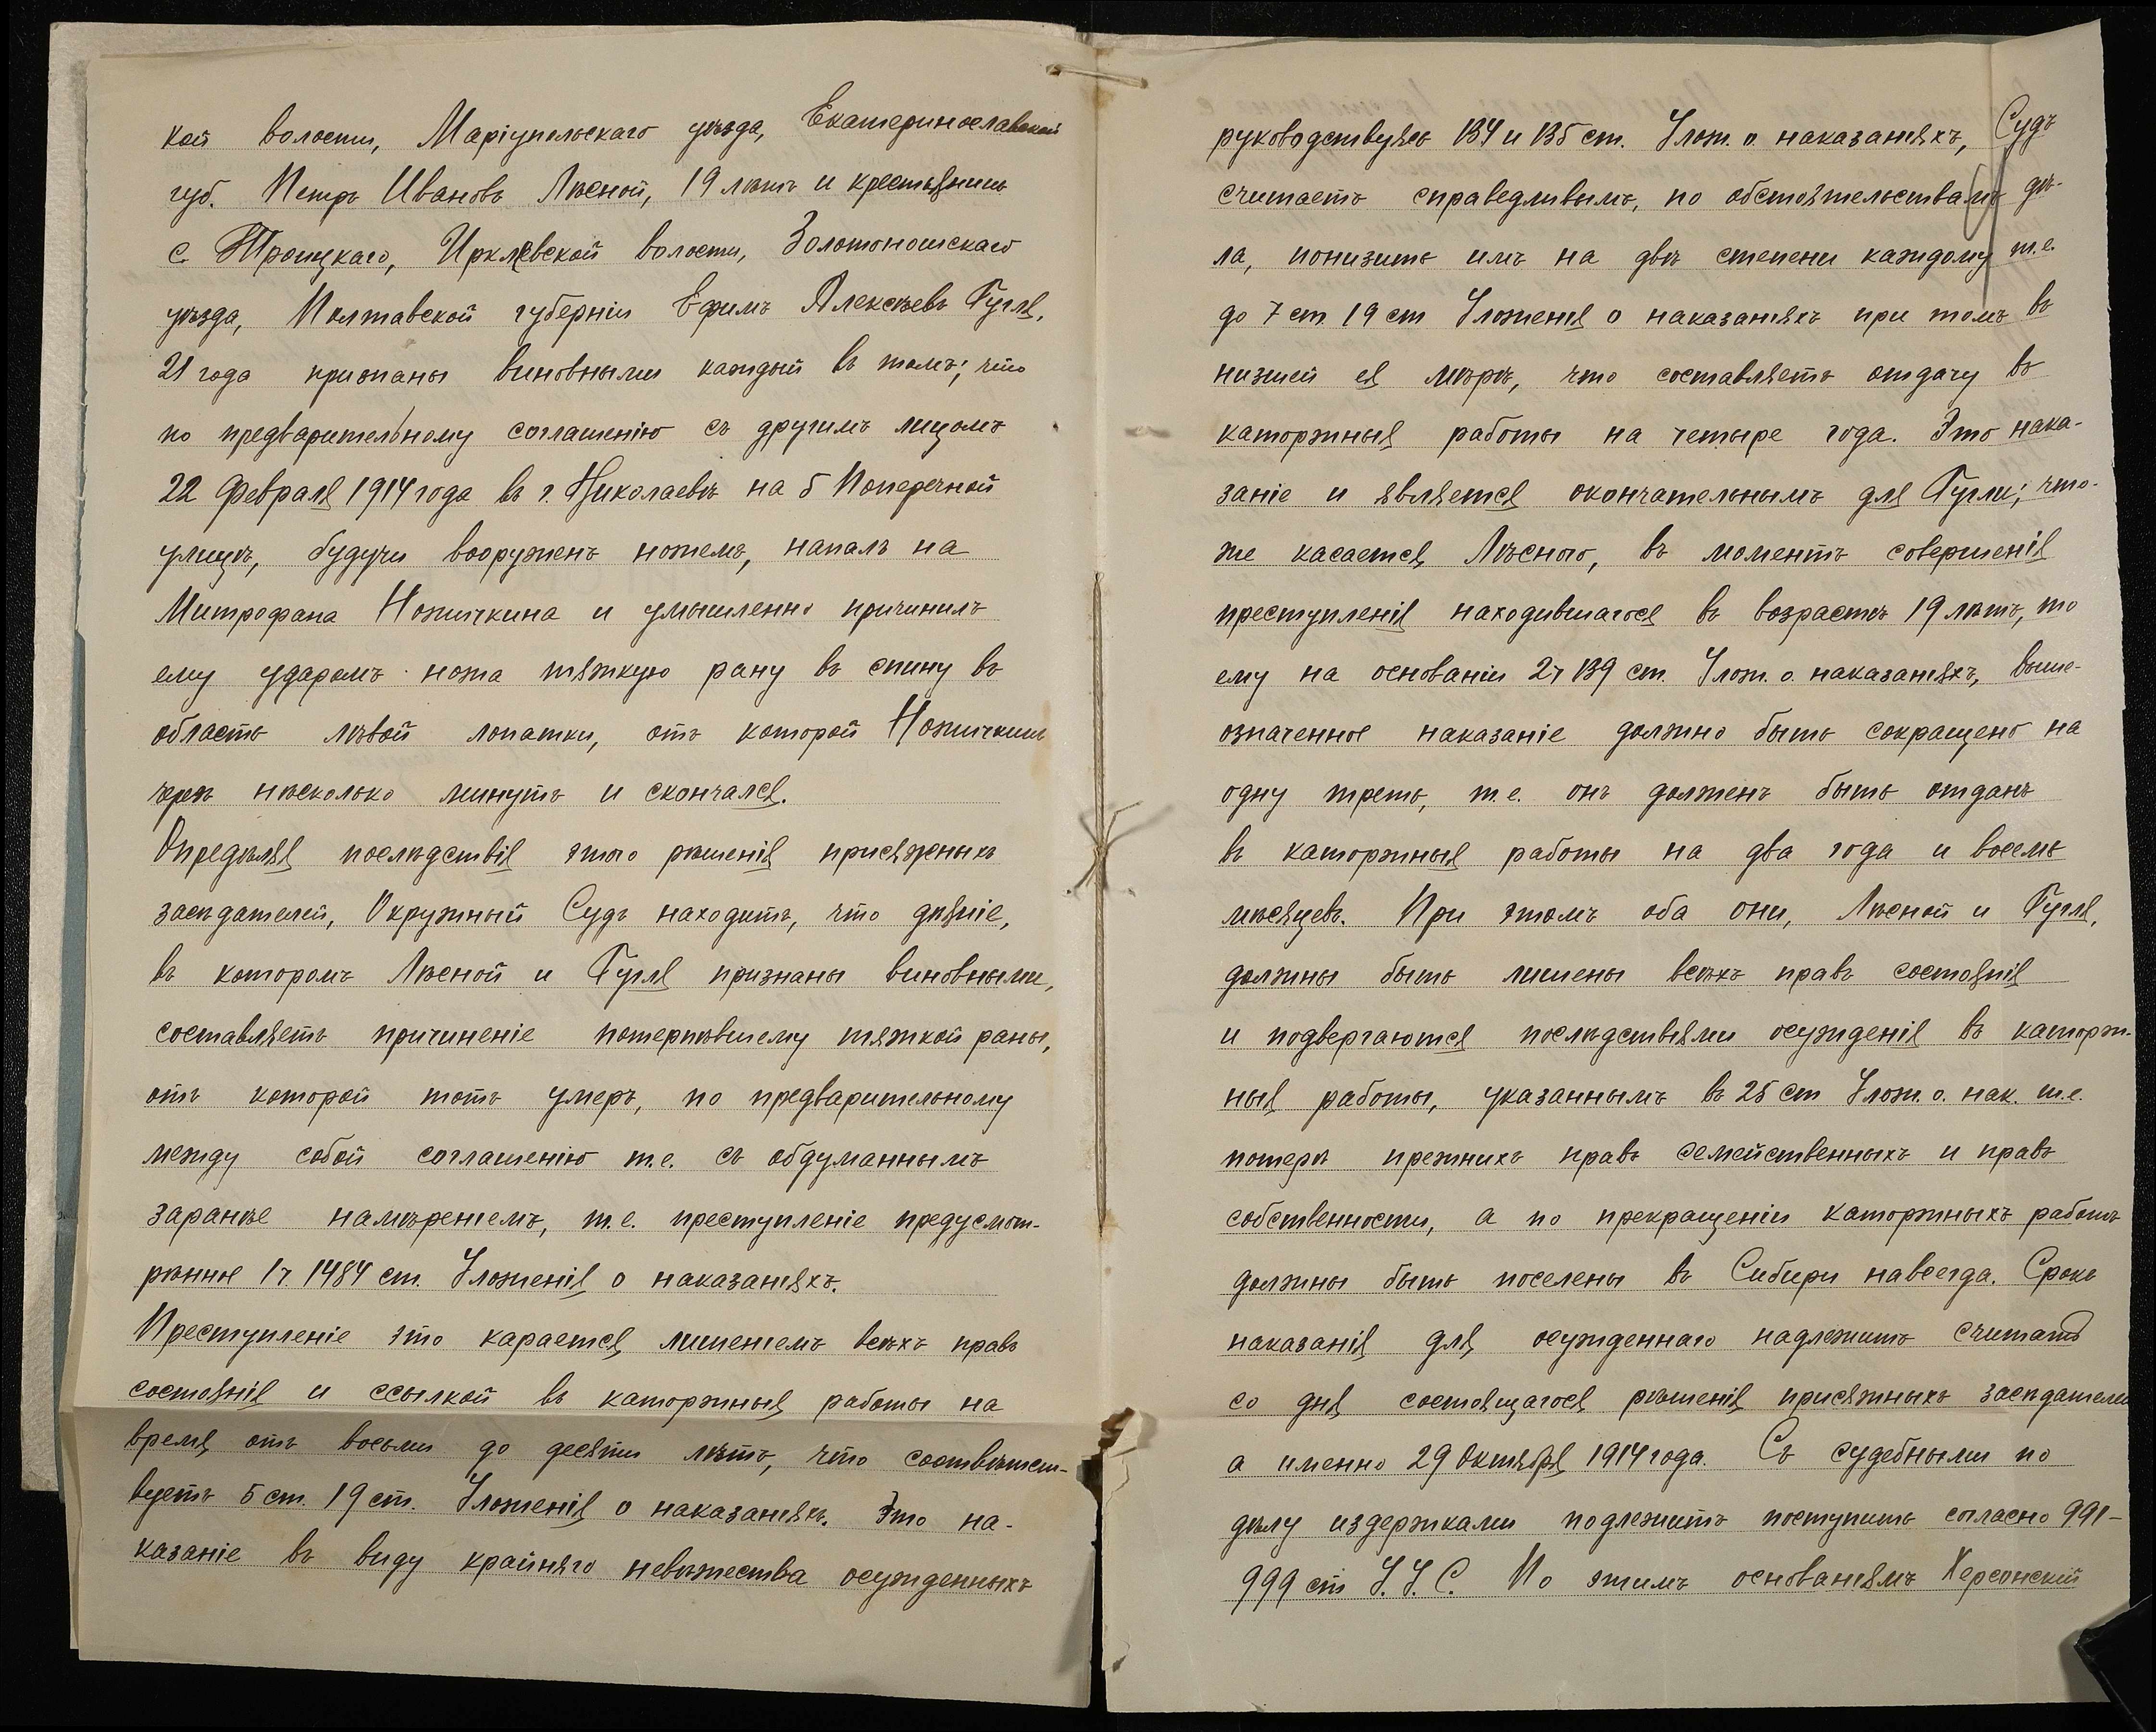 кой волости, Маріупольскаго уѣзда, Екатеринославской
губ. Петръ Ивановъ Лѣсной, 19 лѣтъ и крестьянинъ
с. Троицкаго, Ирклѣевской волости, Золотоношскаго
уѣзда, Полтавской губерніи Ефимъ Алексѣевъ Гугля,
21 года признаны виновными каждый въ томъ, что
по предварительному соглашенію съ другимъ лицомъ
22 Февраля 1914 года въ г. Николаевѣ на 5 Поперечной
улицѣ, будучи вооруженъ ножемъ, напалъ на
Митрофана Ножичкина и умышленно причинилъ
ему ударомъ ножа тяжкую рану въ спину въ
область лѣвой лопатки, отъ которой Ножичкинъ
черезъ нѣсколько минутъ и скончался.
Опредѣляя послѣдствія этого рѣшенія присяжныхъ
засѣдателей, Окружный Судъ находитъ, что дѣяніе,
въ которомъ Лѣсной и Гугля признаны виновными,
составляетъ причиненіе потерпѣвшему тяжкой раны,
отъ которой тотъ умеръ, по предварительному
между собой соглашенію т.е. съ обдуманнымъ
заранѣе намѣреніемъ, т.е. преступленіе предусмот-
рѣнное 1 ч. 1484 ст. Уложенія о наказаніяхъ.
Преступленіе это карается лишеніемъ всѣхъ правъ
состоянія и ссылкой въ каторжныя работы на
время отъ восьми до десяти лѣтъ, что соотвѣтст-
вуетъ 5 ст. 19 ст. Уложенія о наказаніяхъ. Это на-
казаніе въ виду крайняго невѣжества осужденныхъ
руководствуясь 134 и 135 ст. Улож. о наказаніяхъ, Судъ
считаетъ справедливымъ, по обстоятельствамъ дѣ-
ла, понизить имъ на двѣ степени каждому т.е.
до 7 ст. 19 ст Уложенія о наказаніяхъ при томъ въ
низшей ея мѣрѣ, что составляетъ отдачу въ
каторжныя работы на четыре года. Это нака-
заніе и является окончательнымъ для Гугли; что-
же касается Лѣсного, въ моментъ совершенія
преступленія находившагося въ возрастѣ 19 лѣтъ, то
ему на основаніи 2 ч 139 ст. Улож. о. наказаніяхъ, выше-
означенное наказаніе должно быть сокращено на
одну треть, т.е. онъ долженъ быть отданъ
въ каторжныя работы на два года и восемь
мѣсяцевъ. При этомъ оба они, Лѣсной и Гугля,
должны быть лишены всѣхъ правъ состоянія
и подвергаются послѣдствіями осужденія въ каторж-
ныя работы, указаннымъ въ 25 ст Улож. о. нак. т.е.
потерѣ прежнихъ правъ семейственныхъ и правъ
собственности, а по прекращеніи каторжныхъ работъ
должны быть поселены въ Сибири навсегда. Срокъ
наказанія для осужденнаго надлежитъ считать
со дня состоящагося рѣшенія присяжныхъ засѣдателей
а именно 29 Октября 1914 года. Съ судебными по
дѣлу издержками подлежитъ поступить согласно 991-
999 ст У.У.С. По этимъ основаніямъ Херсонскій